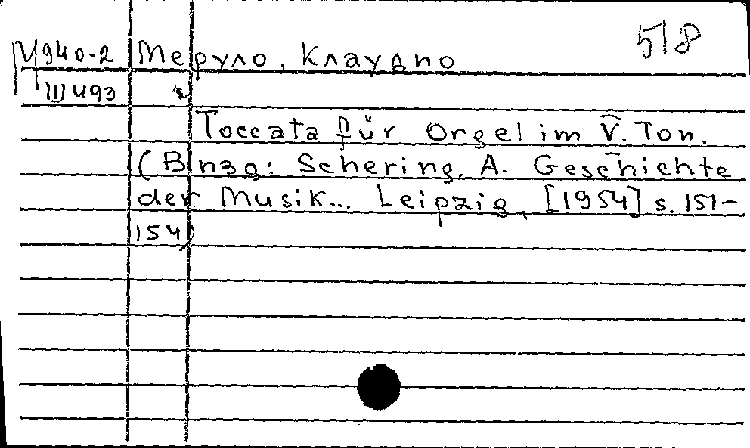 578
М940-2 Меруло, Клаудио
Ш493
Toccata für Orgel im V. Ton.
(В изд: Schering, A. Geschichte
der Musik... Leipzig, [1954] s. 151-
154)